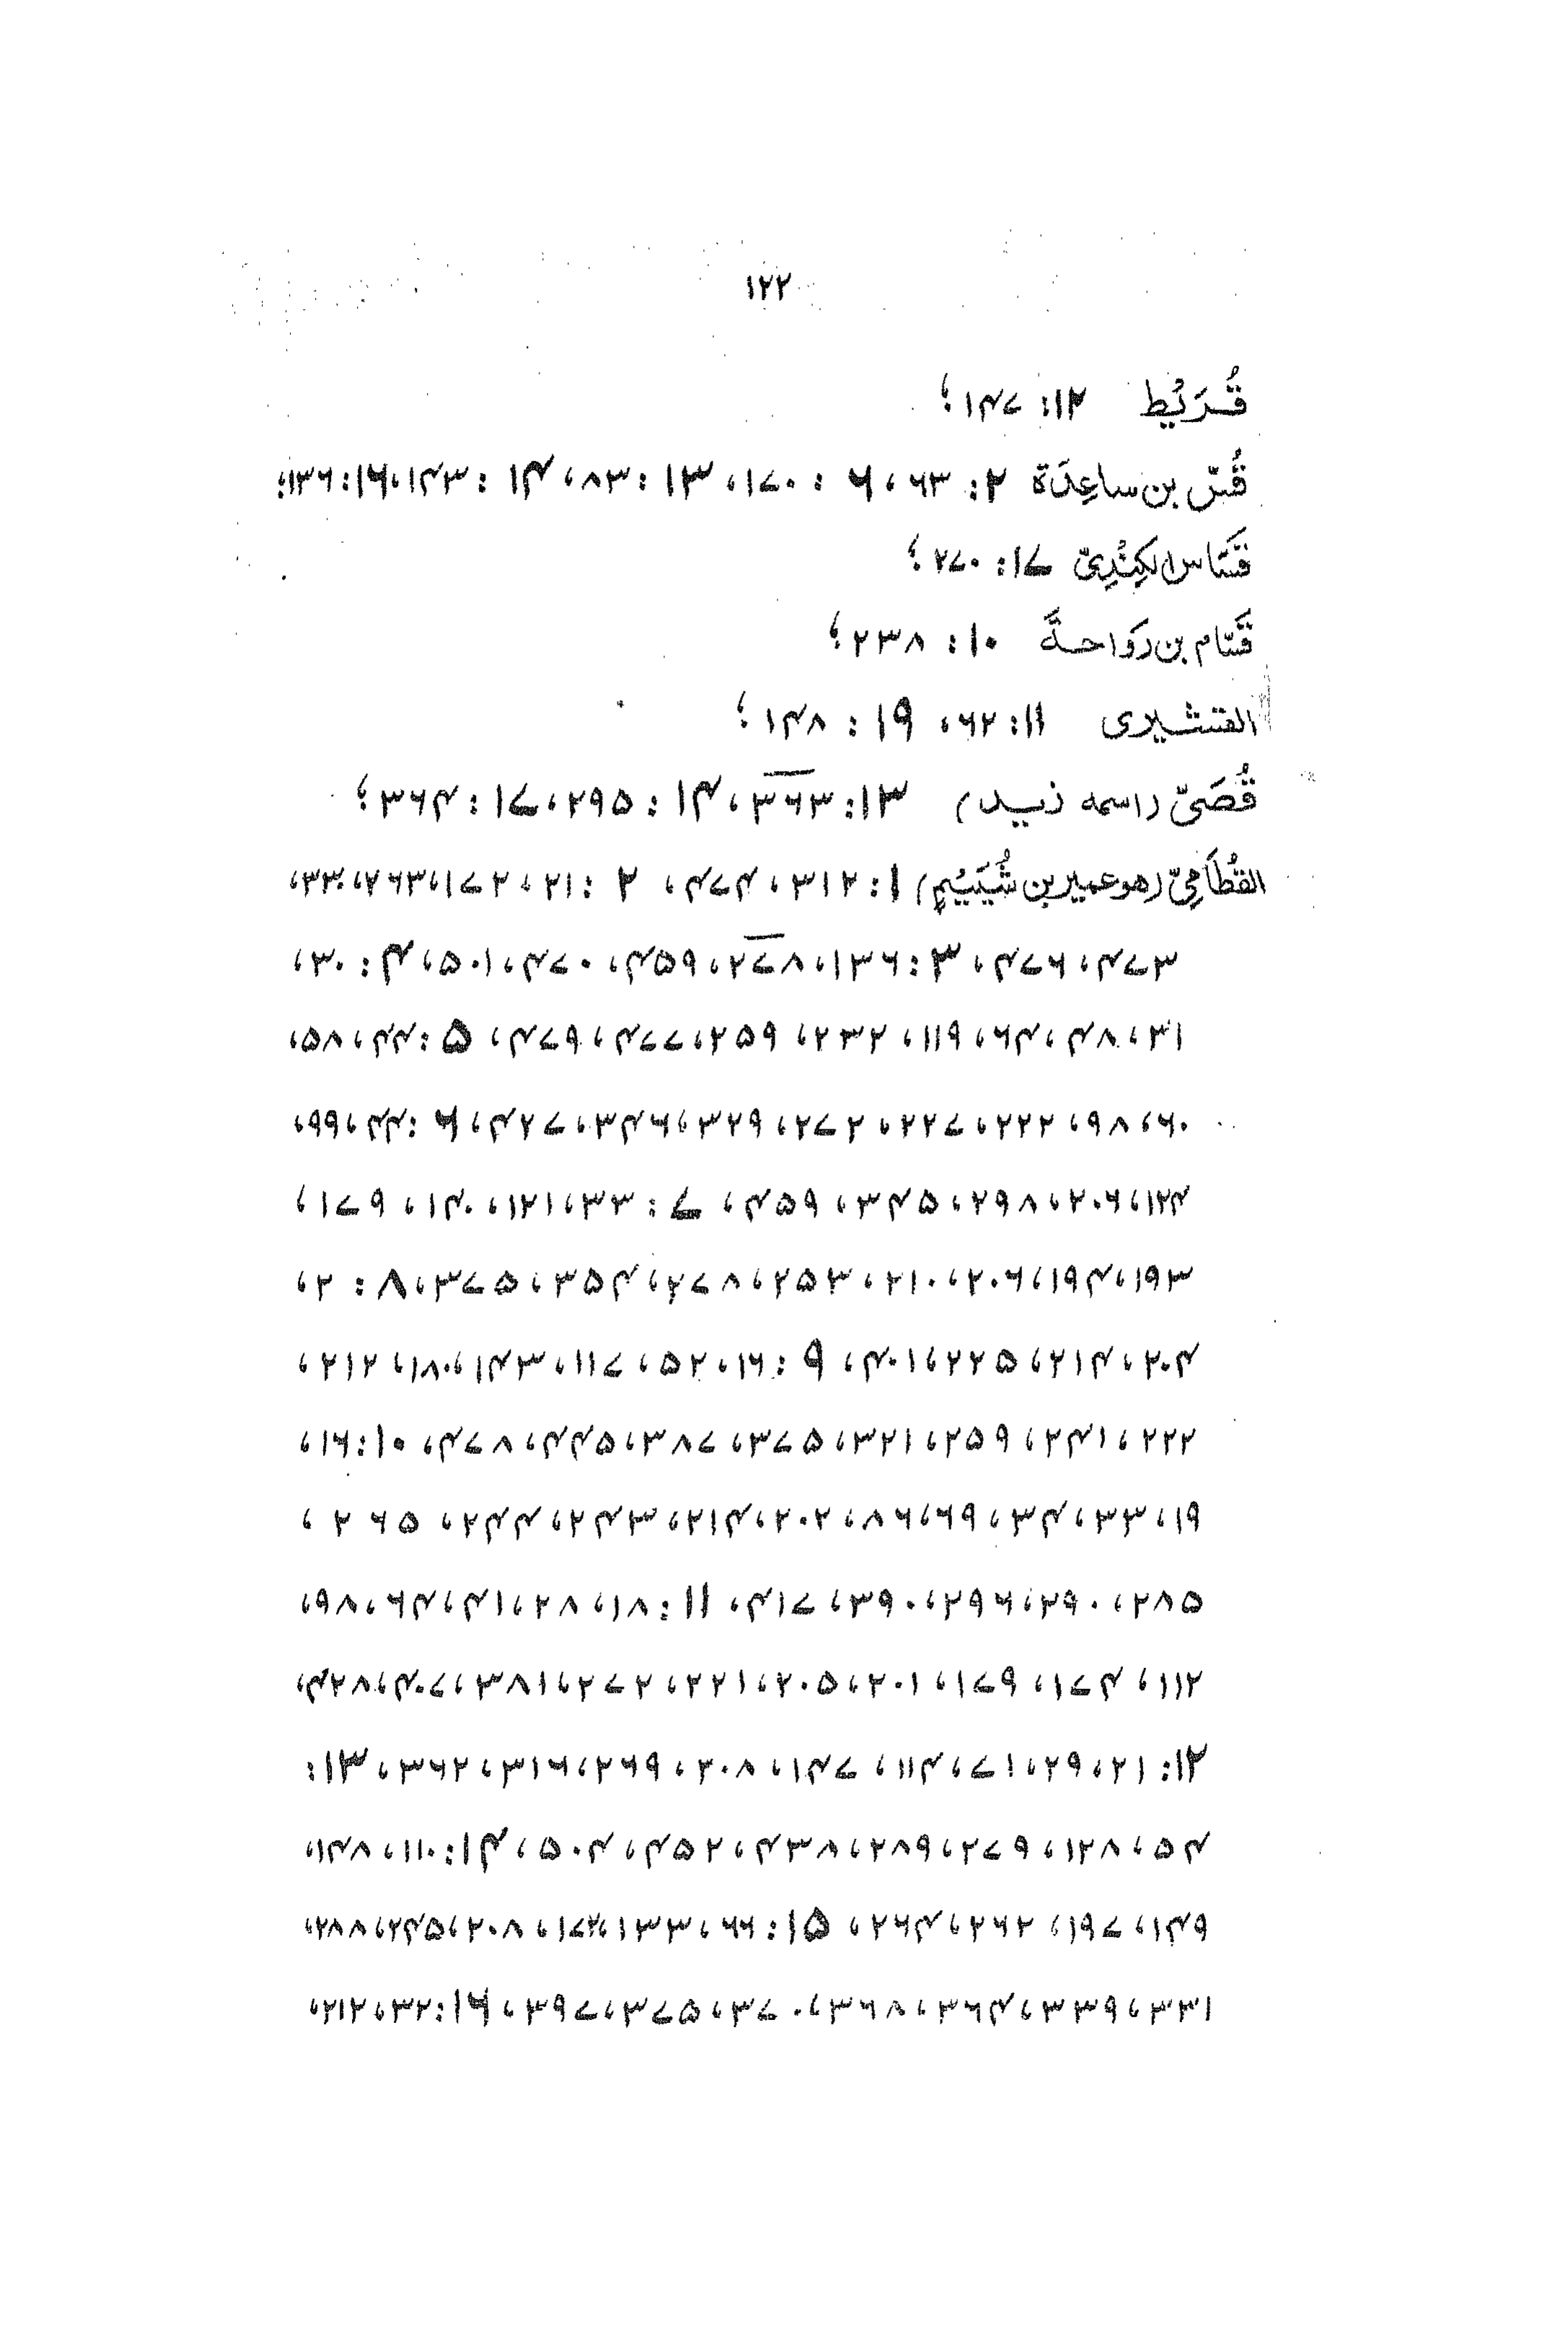 ١٢٢
قُرَيْط ١٢: ١٤٧؛
قُسّ بن ساعِدَة ٢: ٦٣، ٦: ١٧٠، ١٣: ٨٣، ١٤: ١٤٣، ١٦: ١٣٦؛
قَسّاس الكِنْدِيّ ١٧: ٢٧٠؛
قَسّام بن رَوَاحَة ١٠: ٢٣٨؛
القشيرى ١١: ٦٢، ١٩: ١٤٨؛
قُصَيّ (اسمه زيد) ١٣: ٣٦٣، ١٤: ٢٩٥، ١٧: ٣٦٤؛
القُطَامِيّ (هو عمير بن شُيَيْم) ١: ٣١٢، ٤٧٤، ٢: ٢١، ١٧٢، ٧٦٣، ٣٣٠،
٤٧٣، ٤٧٦، ٣: ١٣٦، ٢٧٨، ٤٥٩، ٤٧٠، ٥٠١، ٤: ٣٠،
٣١، ٤٨، ٦٤، ١١٩، ٢٣٢، ٢٥٩، ٤٧٧، ٤٧٩، ٥: ٤٤، ٥٨،
٦٠، ٩٨، ٢٢٢، ٢٢٧، ٢٧٢، ٣٢٩، ٣٤٦، ٤٢٧، ٦: ٤٤، ٩٩،
١٢٤، ٢٠٦، ٢٩٨، ٣٤٥، ٤٥٩، ٧: ٣٣، ١٢١، ١٤٠، ١٧٩،
١٩٣، ١٩٤، ٢٠٦، ٢١٠، ٢٥٣، ٢٧٨، ٣٥٤، ٣٧٥، ٨: ٢،
٢٠٤، ٢١٤، ٢٢٥، ٤٠١، ٩: ١٦، ٥٢، ١١٧، ١٤٣، ١٨٠، ٢١٢،
٢٢٢، ٢٤١، ٢٥٩، ٣٢١، ٣٧٥، ٣٨٧، ٤٤٥، ٤٧٨، ١٠: ١٦،
١٩، ٣٣، ٣٤، ٦٩، ٨٦، ٢٠٢، ٢١٤، ٢٤٣، ٢٤٤، ٢٦٥،
٢٨٥، ٢٩٠، ٢٩٦، ٣٩٠، ٤١٧، ١١: ١٨، ٢٨، ٤١، ٦٤، ٩٨،
١١٢، ١٧٤، ١٧٩، ٢٠١، ٢٠٥، ٢٢١، ٢٧٢، ٣٨١، ٤٠٧، ٤٢٨،
١٢: ٢١، ٢٩، ٧١، ١١٤، ١٤٧، ٢٠٨، ٢٦٩، ٣١٦، ٣٦٢، ١٣:
٥٤، ١٢٨، ٢٧٩، ٢٨٩، ٤٣٨، ٤٥٢، ٥٠٤، ١٤: ١١٠، ١٤٨،
١٤٩، ١٩٧، ٢٦٢، ٢٦٤، ١٥: ٦٦، ١٣٣، ٢٠٨، ٢٤٥، ٢٨٨،
٣٣١، ٣٣٩، ٣٦٤، ٣٦٨، ٣٧٠، ٣٧٥، ٣٩٧، ١٦: ٣٢، ٢١٢،